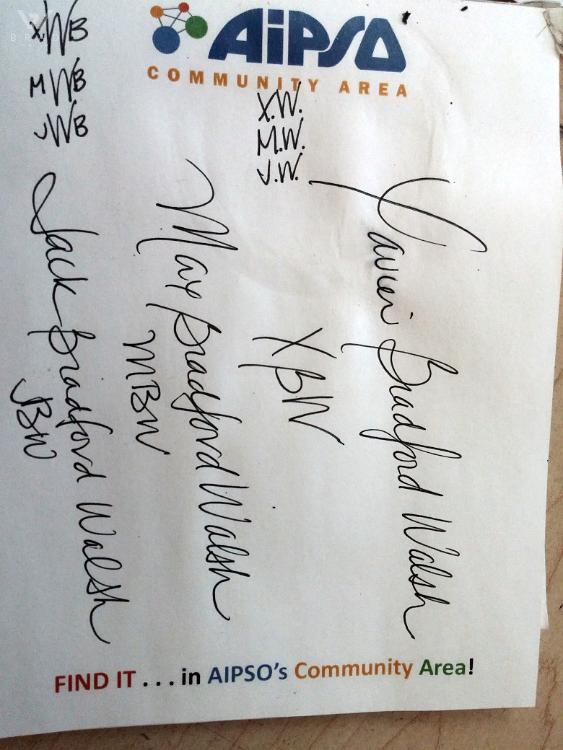 XWB
MWB
JWB
AiPSO
COMMUNITY AREA
X.W.
M.W.
J.W.
Xavier Bradford Walsh
XBW
Max Bradford Walsh
MBW
Jack Bradford Walsh
JBW
FIND IT . . . in AIPSO's Community Area!